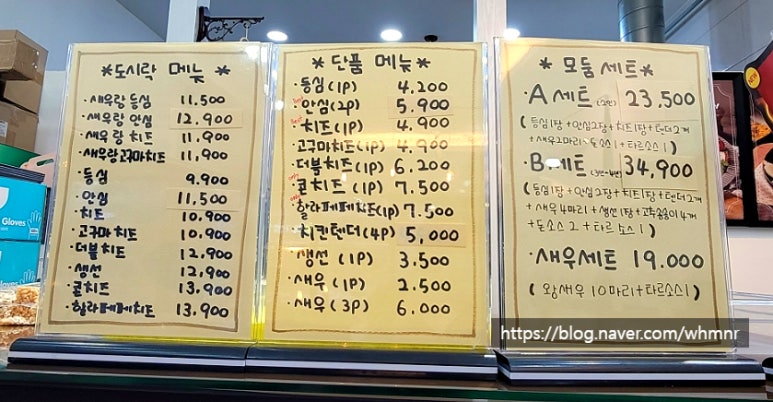 *도시락 메뉴*
·새우랑 등심 11,500
새우랑 안심 12,900
새우랑 치즈 11,900
·새우랑고구마치즈 11,900
·등심 9,900
·안심 11,500
·치즈 10,900
·고구마치즈 10,900
·더블치즈 12,900
·생선 12,900
·콘치즈 13,900
·할라페페치즈 13,900
* 단품 메뉴 *
·등심(1P) 4,200
안심(2P) 5,900
·치즈(1P) 4,900
고구마치즈(1P) 4,900
·더블치즈(1P) 6,200
콘치즈(1P) 7,500
할라페페치즈(1P) 7,500
·치킨텐더(4P) 5,000
·생선 (1P) 3,500
·새우 (1P) 2,500
·새우 (3P) 6,000
* 모둠 세트 *
·A세트(2인) 23,500
(등심1장+안심2장+치즈1장+텐더2개
+새우2마리+돈소스1+타르소스1)
·B세트(3인~4인) 34,900
(등심1장+안심2장+치즈1장+텐더2개
+새우4마리+생선1장+고추송송이4개
+돈소스2+타르소스1)
·새우세트 19,000
(왕새우10마리+타르소스1)
Gloves
https://blog.naver.com/whmnr